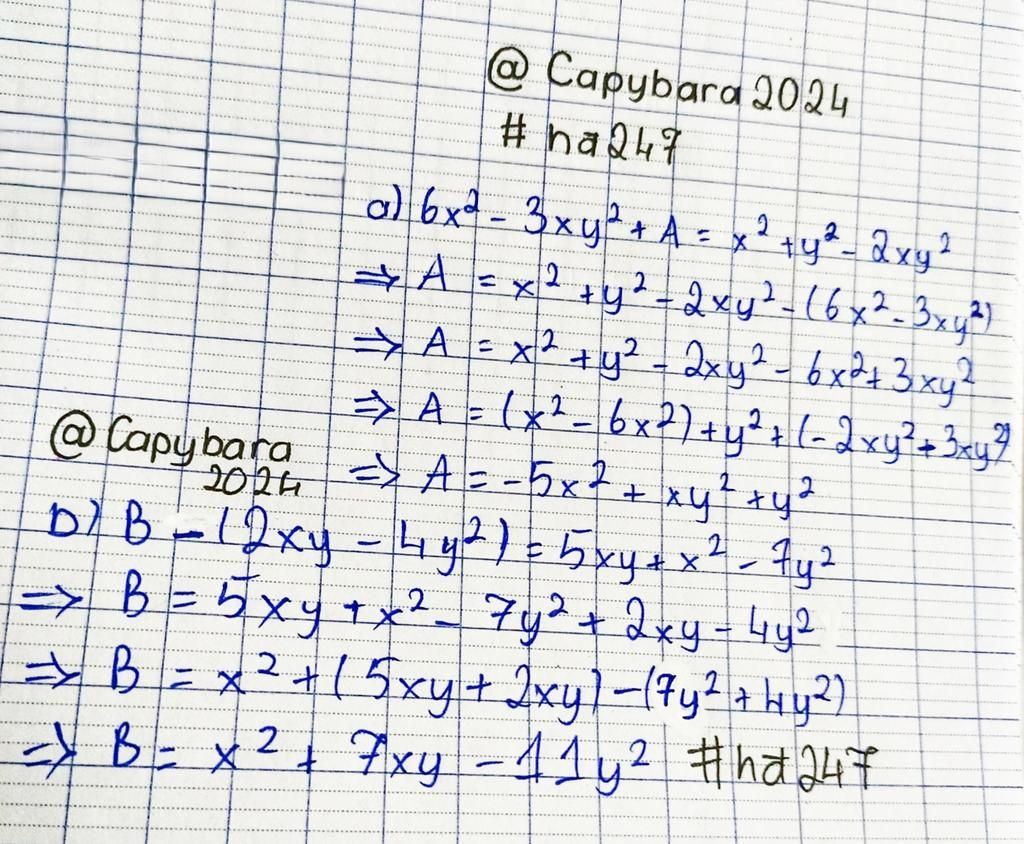 @ Capybara 2024
# hđ247
a) 6x² - 3xy² + A = x² + y² - 2xy²
⇒ A = x² + y² - 2xy² - (6x² - 3xy²)
⇒ A = x² + y² - 2xy² - 6x² + 3xy²
⇒ A = (x² - 6x²) + y² + (-2xy² + 3xy²)
⇒ A = -5x² + xy² + y²
@ Capybara
2024
b) B - (2xy - 4y²) = 5xy + x² - 7y²
⇒ B = 5xy + x² - 7y² + 2xy - 4y²
⇒ B = x² + (5xy + 2xy) - (7y² + 4y²)
⇒ B = x² + 7xy - 11y² #hđ247